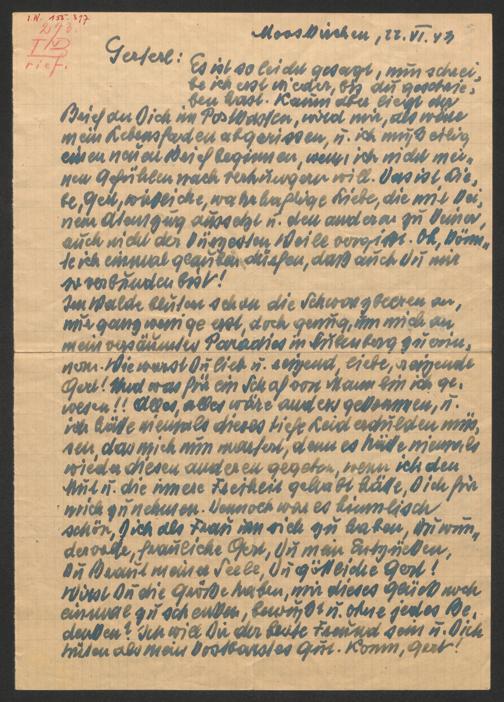 I.N. 155.397
Mooskirchen, 22. VI. 43
Gerterl:
Es ist so leicht gesagt, nun schrei-
be ich erst wieder, bis du geschrie-
ben hast. Kaum aber liegt der
Brief an Dich im Postkasten, wird mir, als wäre
mein Lebensfaden abgerissen, u. ich muß eilig
einen neuen Brief beginnen, wenn ich nicht mei-
nen Gefühlen nach verhungern will. Das ist Lie-
be, Gert, wirkliche, wahrhaftige Liebe, die mit Dei-
nem Atemzug aussetzt u. den anderen zu Deiner,
auch nicht der kürzesten Weile vergißt. Oh, könn-
te ich einmal glauben dürfen, daß auch Du mir
so verbunden bist!
Im Walde bluten schon die Schwarzbeeren an,
nur ganz wenige erst, doch genug, um mich an
mein versäumtes Paradies in zu erin-
nern. Wie warst Du lieb u. reizend, liebe, reizende
Gert! Und was für ein Schaf von Mann bin ich ge-
wesen!! Alles, alles wäre anders gekommen, u.
ich hätte niemals dieses tiefe Leid erdulden müs-
sen, das mich nun martert, denn es hätte niemals
wieder diesen anderen gegeben, wenn ich den
Mut u. die innere Freiheit gehabt hätte, Dich für
mich zu nehmen. Dennoch war es himmlisch
schön, Dich als Frau um sich zu haben, Du wun-
dervolle, frauliche Gert, Du mein Entzücken,
Du Braut meiner Seele, Du göttliche Gert!
Wirst Du die Größe haben, mir dieses Glück noch
einmal zu schenken, bewußt u. ohne jedes Be-
denken? Ich will Dir der beste Freund sein u. Dich
hüten als mein kostbarstes Gut. Komm, Gert!